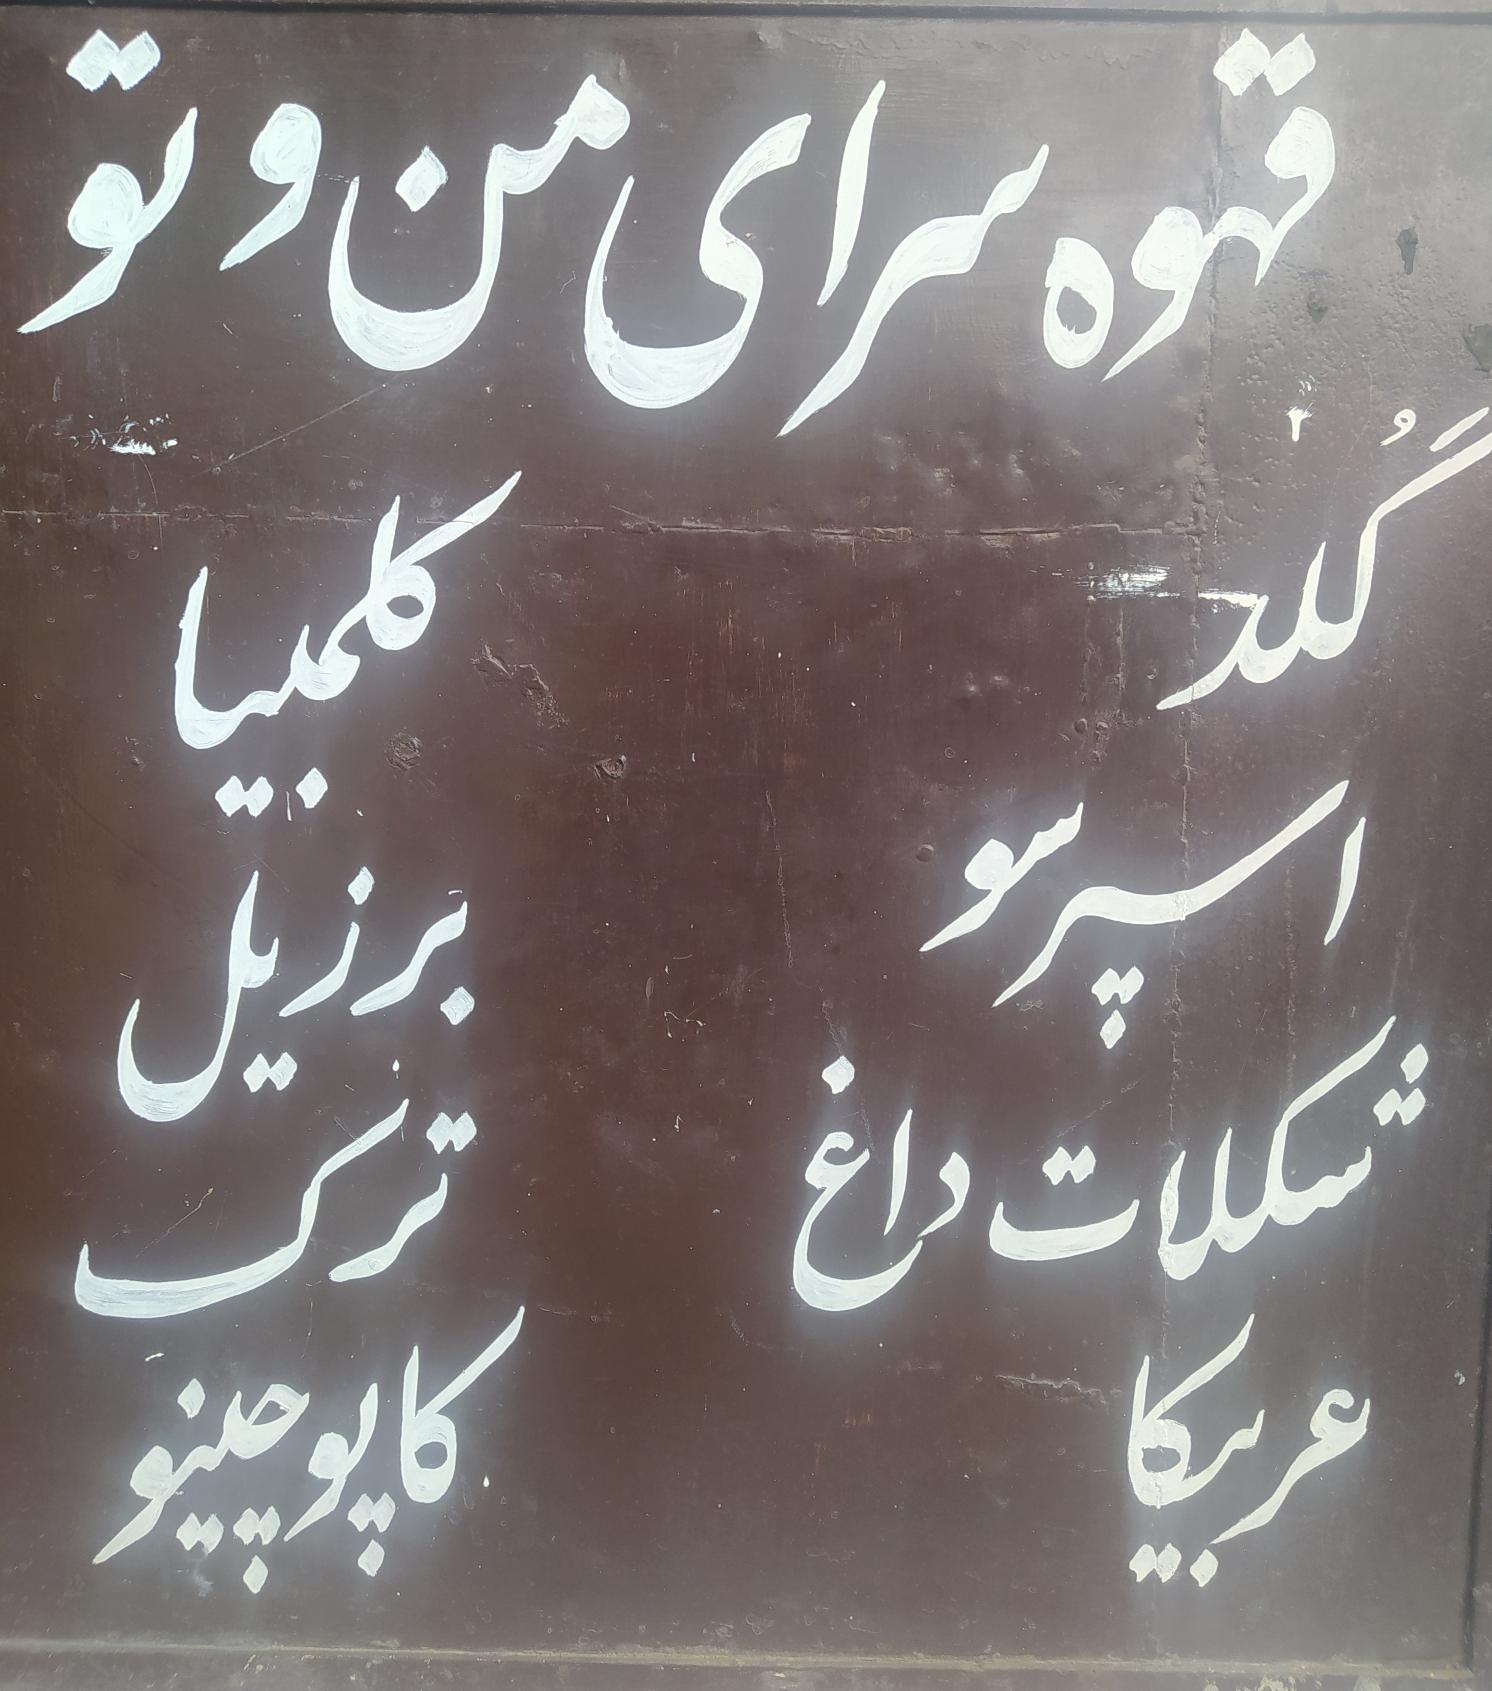 قهوه سرای من و تو
گُلد
اسپرسو
شکلات داغ
عربیکا
کلمبیا
بَرزیل
ترک
کاپوچینو